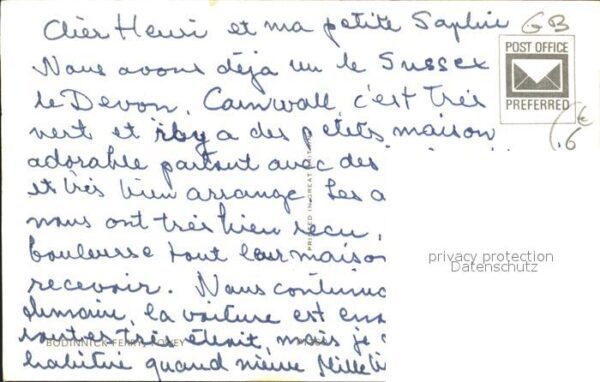 Cher Henri et ma petite Sophie
GB
POST OFFICE
PREFERRED
Nous avons déjà vu le Sussex
le Devon, Cornwall, c'est très
vert et il y a des petits maison
adorable partout avec des
et très bien arrangé. Les a
nous ont très bien reçu,
bouleversé tout leur maison
recevoir. Nous continuo
demain, la voiture est en
routes très étroit, mais je
habitué quand même Mille bi
€
6
PRINTED IN GREAT BRITAIN
privacy protection
Datenschutz
BODINNICK FERRY, FOWEY